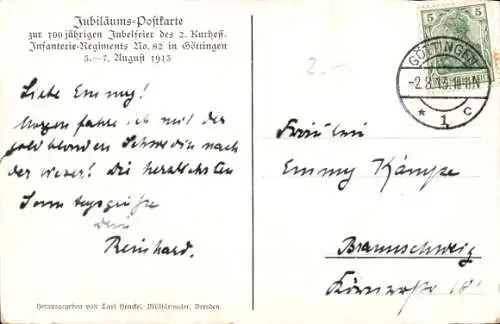 Jubiläums-Postkarte
zur 100 jährigen Jubelfeier des 2. Kurhess.
Infanterie-Regiments No. 82 in Göttingen
5.–7. August 1913
5
5
GÖTTINGEN
-2.8.13.10-11N
* 1 c
2.-
Liebe Emmy!
Morgen fahre ich mit der
goldblonden Schwedin nach
der Weser! Die herzlichsten
Sonntagsgrüße
Dein
Reinhard.
Fräulein
Emmy Kämpe
Braunschweig
Herausgegeben von Carl Henckel, Militärmaler, Dresden.